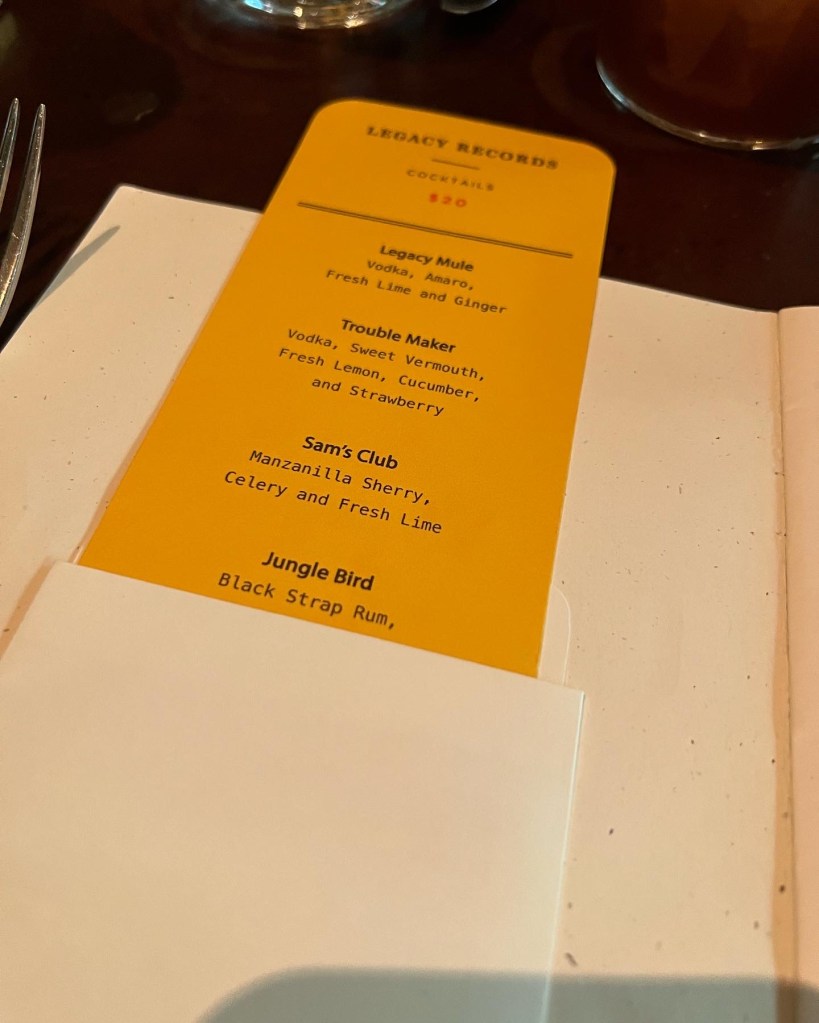 LEGACY RECORDS
COCKTAILS
$20
Legacy Mule
Vodka, Amaro,
Fresh Lime and Ginger
Trouble Maker
Vodka, Sweet Vermouth,
Fresh Lemon, Cucumber,
and Strawberry
Sam's Club
Manzanilla Sherry,
Celery and Fresh Lime
Jungle Bird
Black Strap Rum,